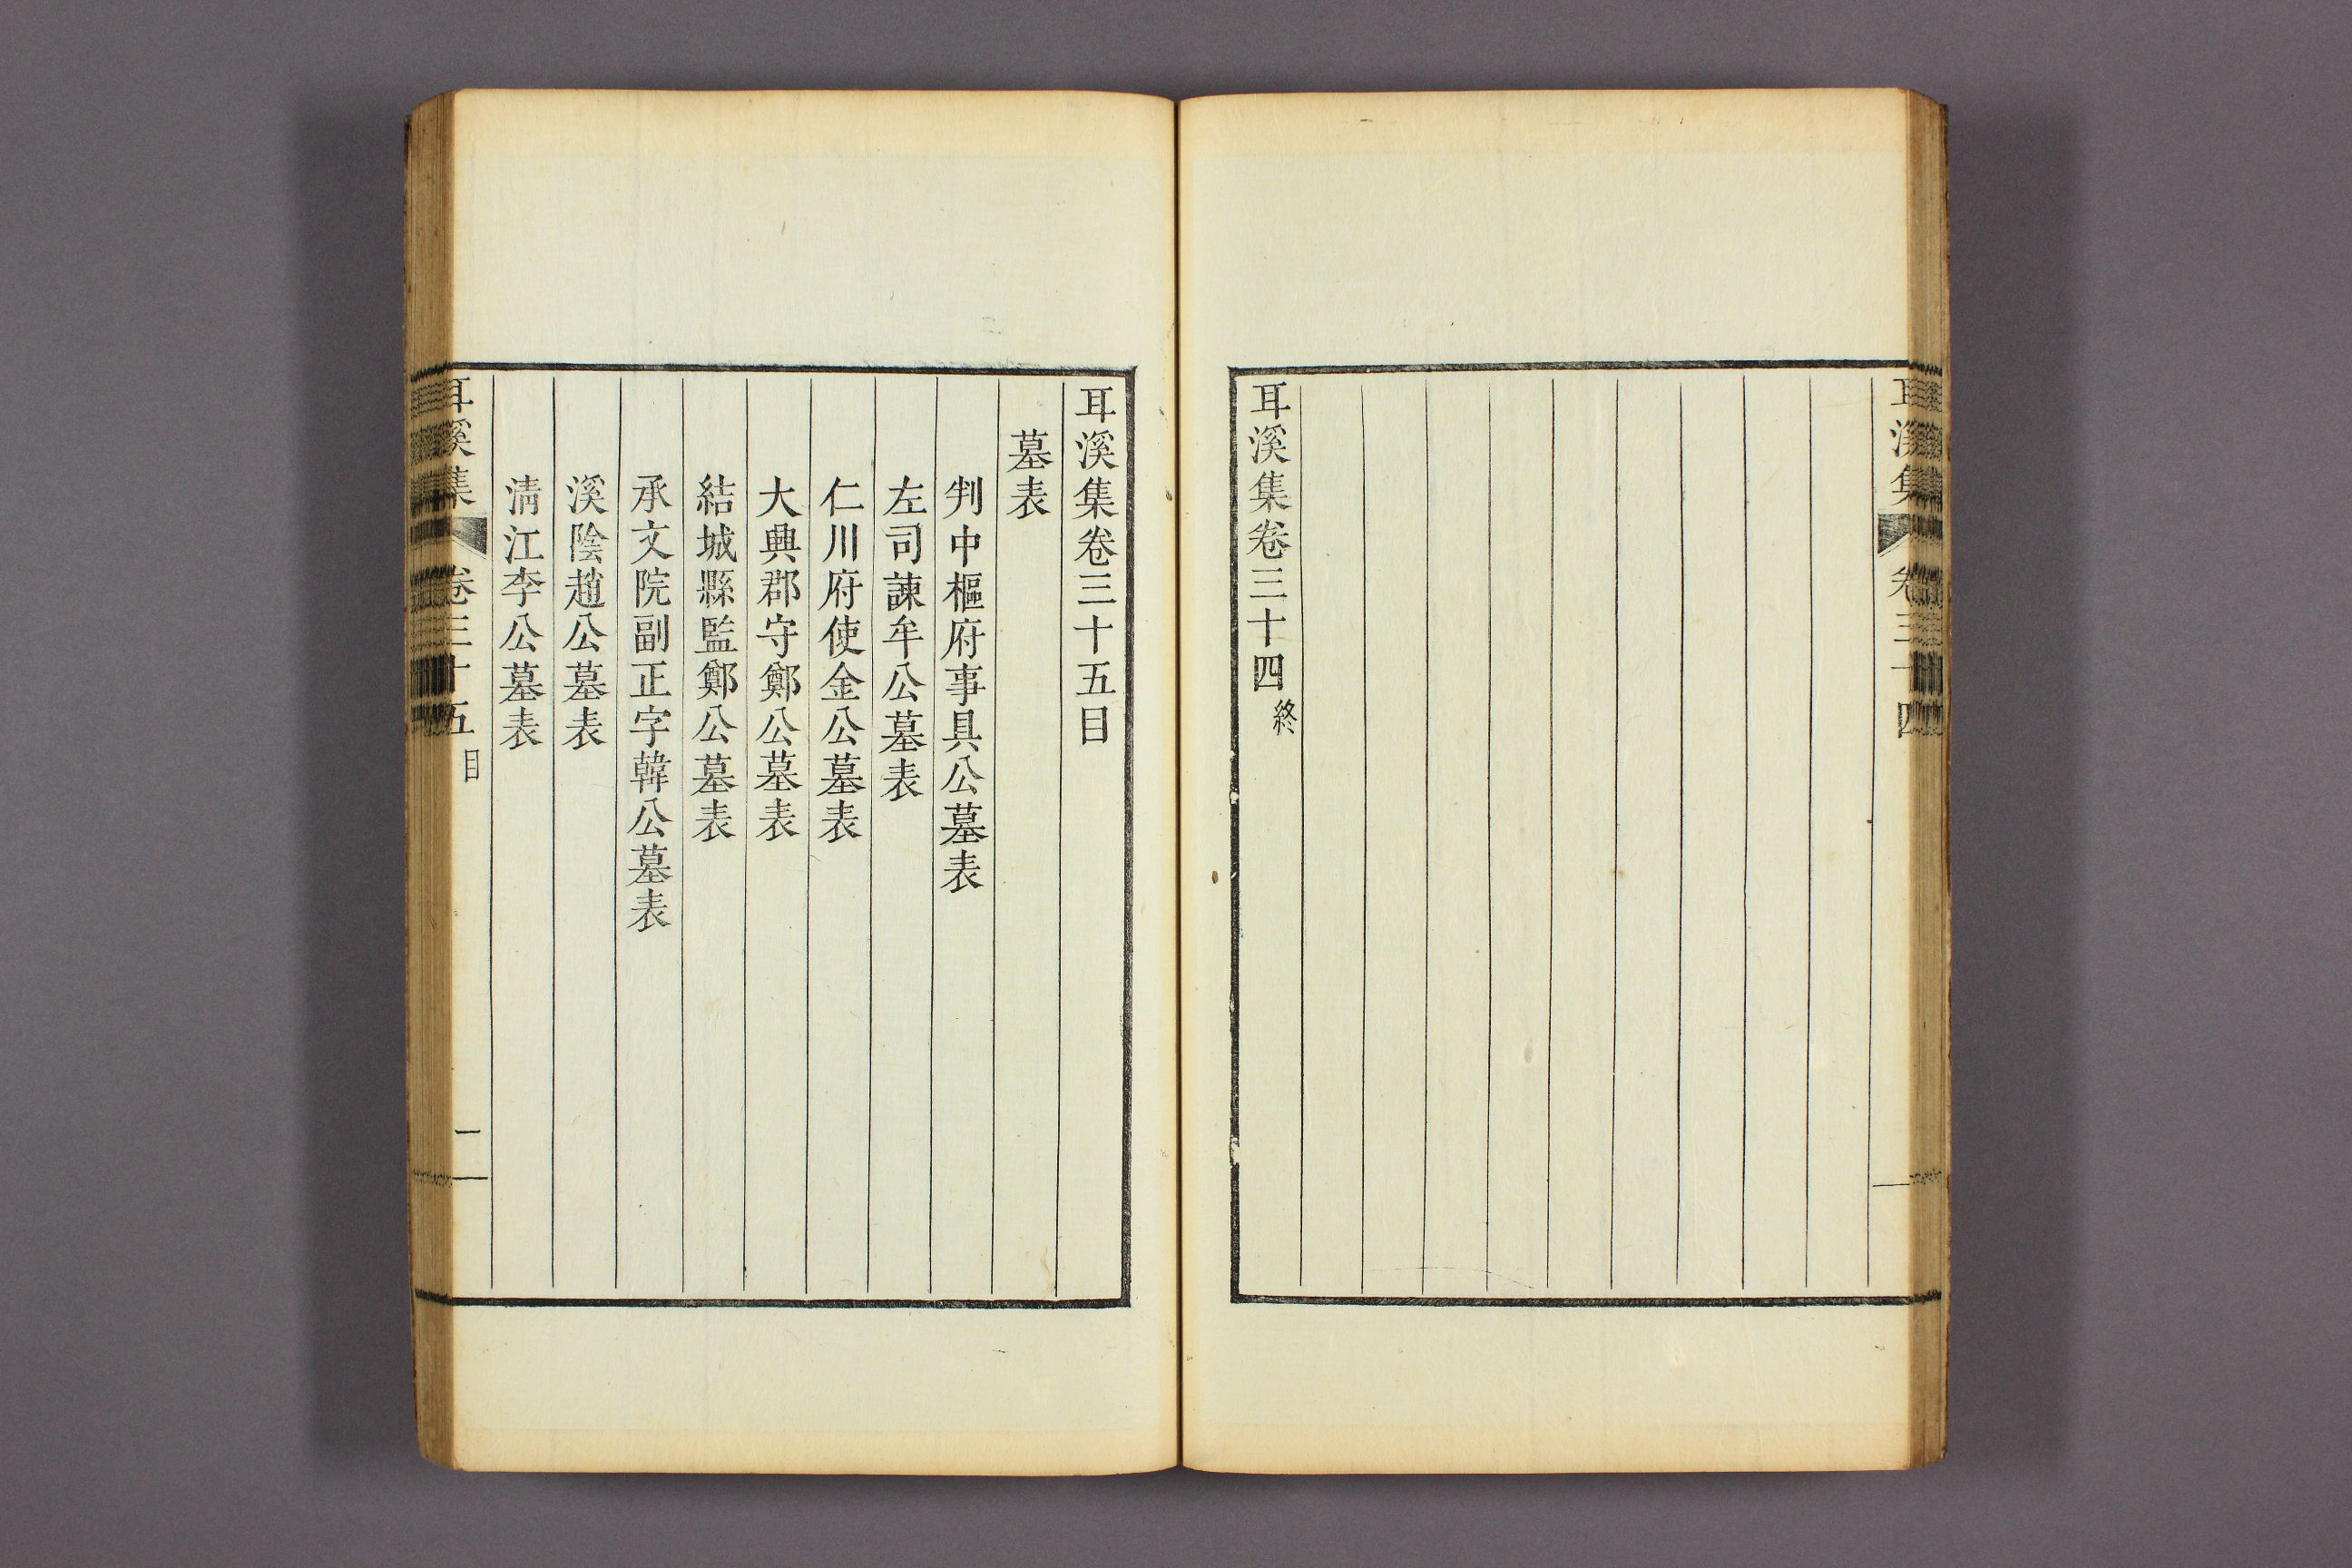 耳溪集
卷三十四
耳溪集卷三十四終
耳溪集卷三十五目
墓表
判中樞府事具公墓表
左司諫牟公墓表
仁川府使金公墓表
大興郡守鄭公墓表
結城縣監鄭公墓表
承文院副正字韓公墓表
溪陰趙公墓表
淸江李公墓表
耳溪集
卷三十五目
一